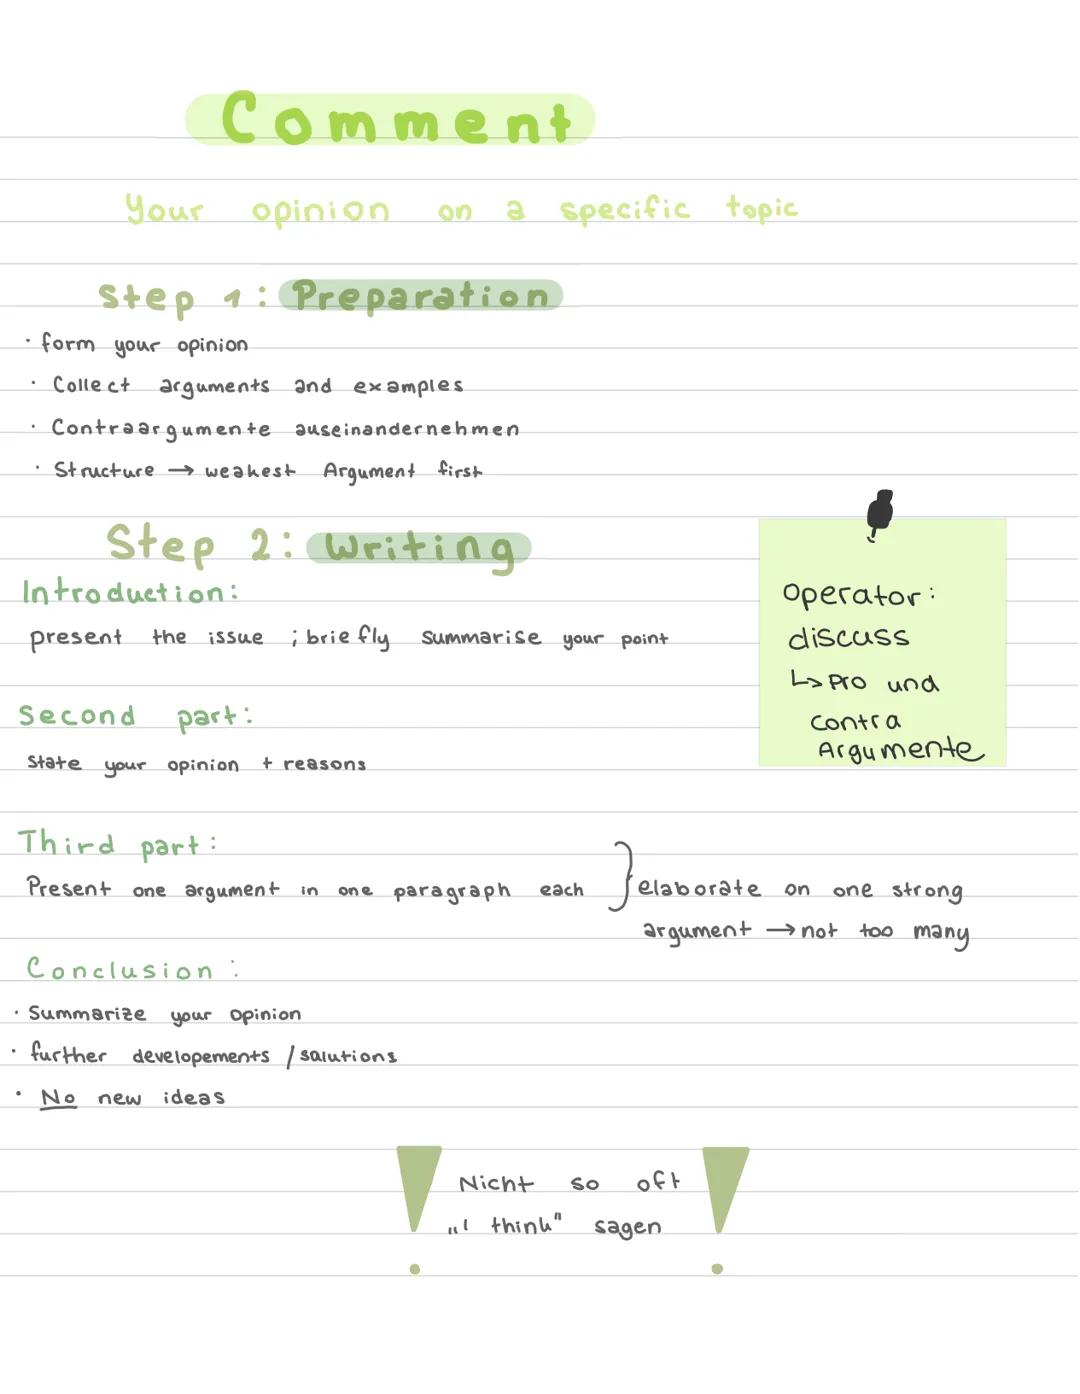 Comment
Your opinion on a specific topic
Step 1: Preparation
· form your opinion
· Collect arguments and examples
· Contraargumente auseinandernehmen
· Structure → weakest Argument first
Step 2: Writing
Introduction:
present the issue ; briefly summarise your point
Operator:
discuss
↳ Pro und
contra
Argumente
Second part:
State your opinion + reasons
Third part:
Present one argument in one paragraph each } elaborate on one strong
argument → not too many
Conclusion:
· Summarize your opinion
· further developements / salutions
· No new ideas
! Nicht so oft !
„I think" sagen